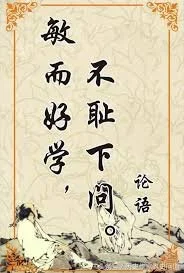 敏而好学，
不耻下问。
论语